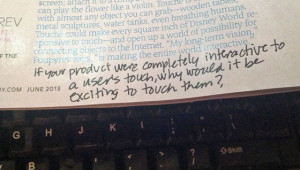 screen, attach it to a
can play the flower like a violin. Touché
with almost any object you can grab—wooden tables,
metal sculptures, water tanks, even breathing
Touché could make every square inch of Disney World re-
sponsive to touch—and open up a world of possibility for
connecting objects to the Internet. "My long-term vision,"
is making the entire world interactive,
REV
OF THE
Y.COM JUNE 2013
If your product were completely interactive to
a user's touch, why would it be
exciting to touch them?
G
H
J
K
L
:
;
"
'
B
N
M
<
>
?
Shift